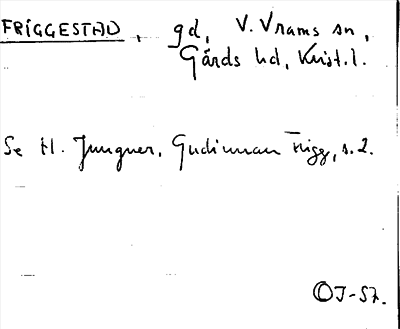 FRIGGESTAD, gd, V. Vrams sn,
Gärds hd, Krist.l.
Se H. Jungner, Gudinnan Frigg, s. 2.
OJ-57.